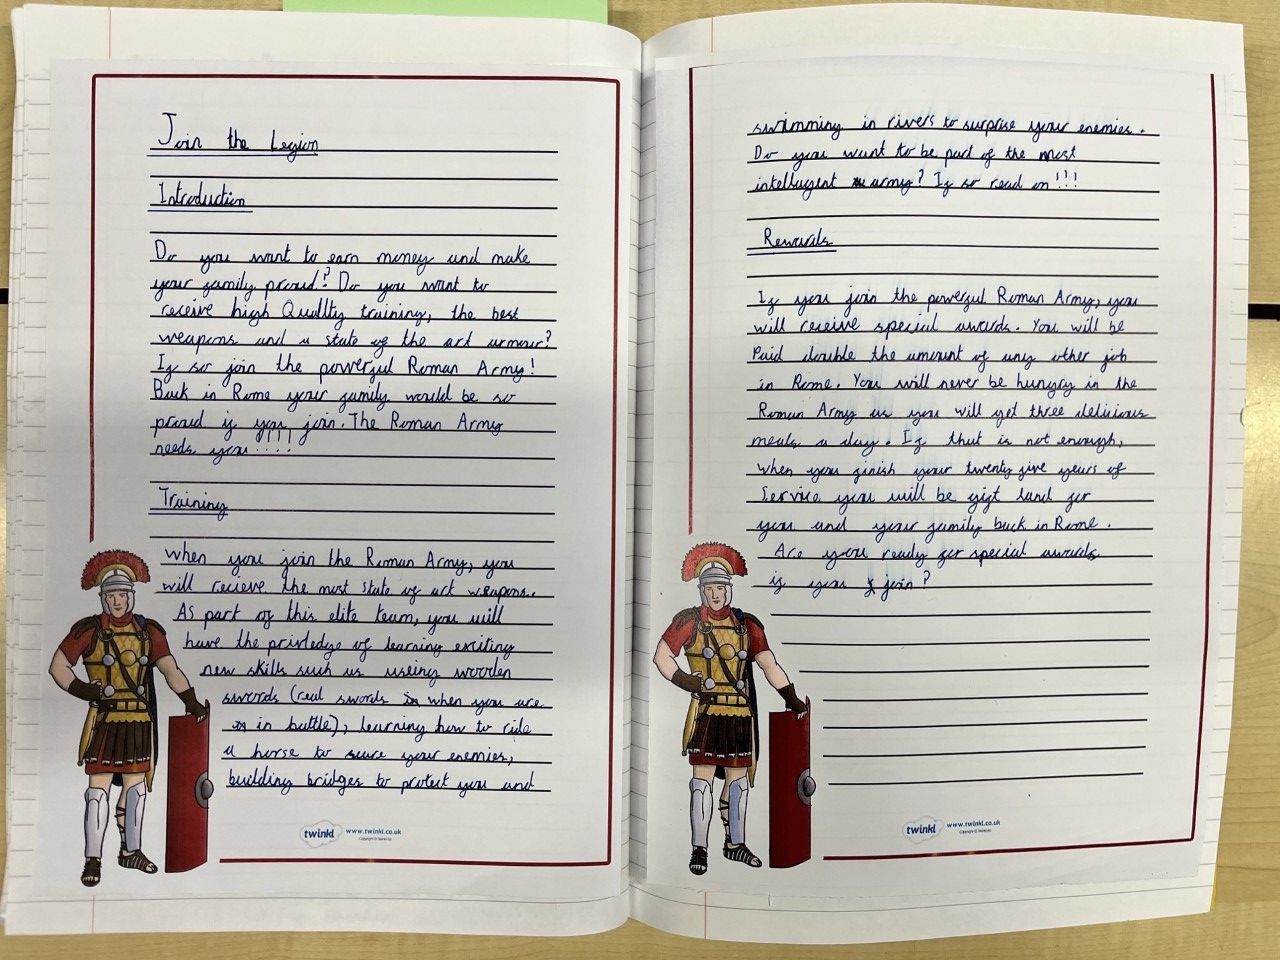 Join the Legion
Introduction
Do you want to earn money and make
your family proud? Do you want to
receive high Quallty training, the best
weapons and a state of the art armour?
If so join the powerful Roman Army!
Back in Rome your family would be so
proud if you join. The Roman Army
needs you!!!!
Training
when you join the Roman Army, you
will recieve the most state of art weapons.
As part of this elite team, you will
have the priviledge of learning exiting
new skills such as useing wooden
swords (real swords when you are
in battle), learning how to ride
a horse to scare your enemies,
building bridges to protect you and
twinkl
www.twinkl.co.uk
swimming in rivers to surprise your enemies.
Do you want to be part of the most
intellugent army? If so read on!!!
Rewards
If you join the powerful Roman Army, you
will receive special awards. You will be
Paid double the amount of any other job
in Rome. You will never be hungry in the
Roman Army as you will get three delicious
meals a day. If that is not enough,
when you finish your twenty five years of
Service you will be gift land for
you and your family back in Rome.
Are you ready for special awards
if you join?
twinkl
www.twinkl.co.uk